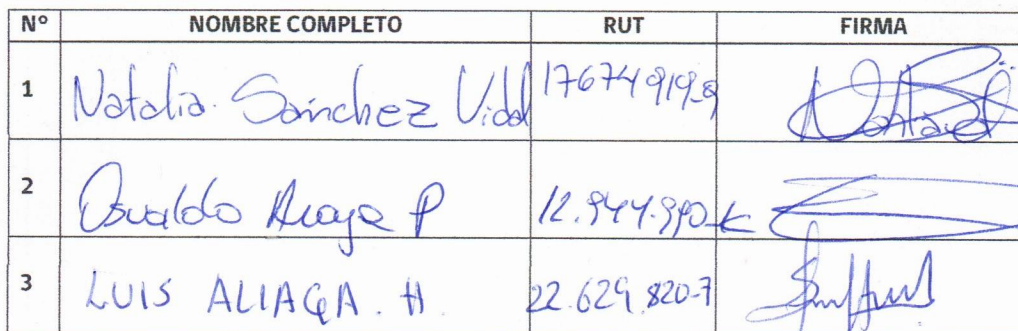 N° NOMBRE COMPLETO RUT FIRMA
1 Natalia Sánchez Vidal 17674919-9
2 Osvaldo Araya P 12.944.990-K
3 LUIS ALIAGA . H 22.629.820-7